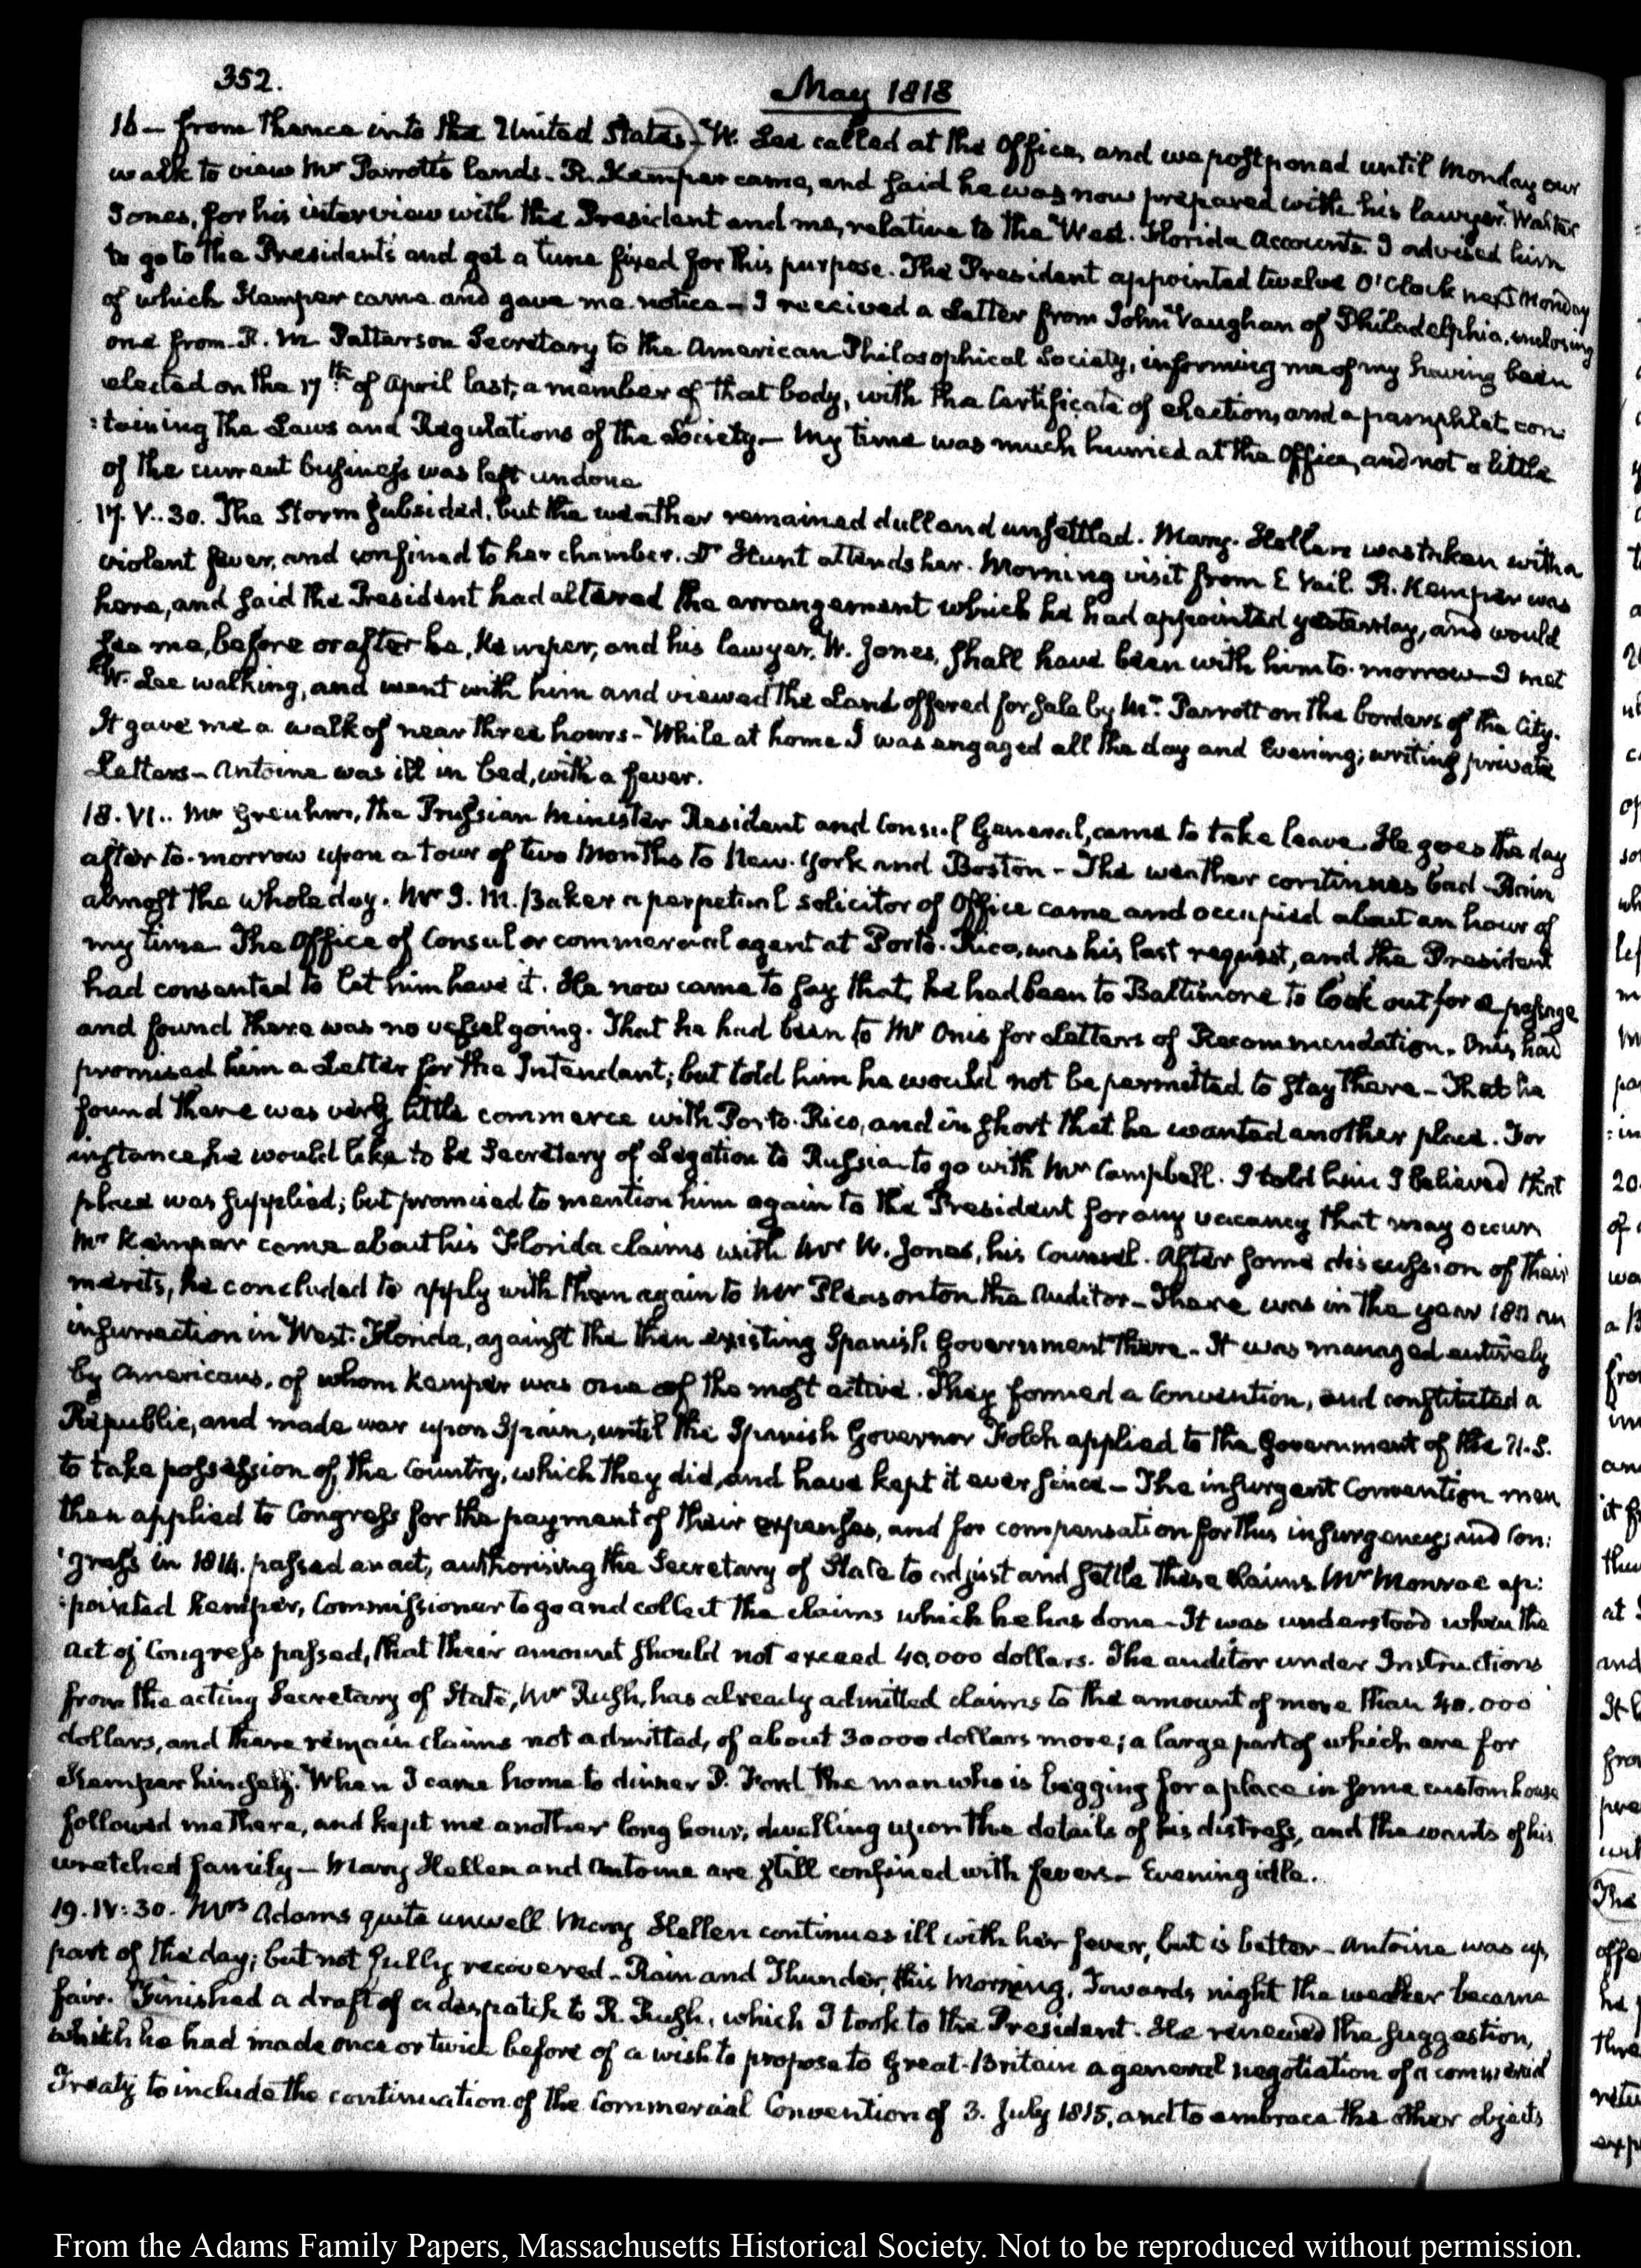 352.
May 1818
16 — from thence into the United States — W. Lee called at the Office, and we postponed until Monday our
walk to view Mr Parrott's lands. R. Kemper came, and said he was now prepared with his lawyer Walter
Jones, for his interview with the President and me, relative to the West-Florida accounts. I advised him
to go to the President's and get a time fixed for this purpose. The President appointed twelve O'Clock next Monday
of which Kemper came and gave me notice — I received a Letter from John Vaughan of Philadelphia, enclosing
one from R. M. Patterson Secretary to the American Philosophical Society, informing me of my having been
elected on the 17th of April last, a member of that body, with the Certificate of election, and a pamphlet con:
:taining the Laws and Regulations of the Society — My time was much hurried at the Office, and not a little
of the current business was left undone
17. V..30. The Storm subsided, but the weather remained dull and unsettled. Mary-Hellen was taken with a
violent fever, and confined to her chamber. Dr Hunt attends her. Morning visit from E Vail. R. Kemper was
here, and said the President had altered the arrangement which he had appointed yesterday, and would
see me, before or after he, Kemper, and his lawyer, W. Jones, shall have been with him to-morrow — I met
W. Lee walking, and went with him and viewed the Land offered for sale by Mr Parrott on the borders of the City.
It gave me a walk of near three hours — While at home I was engaged all the day and Evening; writing private
Letters — Antoine was ill in bed, with a fever.
18. VI.. Mr Greuhm, the Prussian Minister Resident and Consul General, came to take leave. He goes the day
after to-morrow upon a tour of two Months to New-York and Boston — The weather continues bad — Rain
almost the whole day. Mr J. M. Baker a perpetual solicitor of Office came and occupied about an hour of
my time. The Office of Consul or commercial agent at Porto-Rico, was his last request, and the President
had consented to let him have it. He now came to say that, he had been to Baltimore to look out for a passage
and found there was no vessel going. That he had been to Mr Onis for Letters of Recommendation. Onis had
promised him a Letter for the Intendant; but told him he would not be permitted to stay there — That he
found there was very little commerce with Porto-Rico, and in short that he wanted another place. For
instance, he would like to be Secretary of Legation to Russia — to go with Mr Campbell. I told him I believed that
place was supplied; but promised to mention him again to the President for any vacancy that may occur
Mr Kemper came about his Florida claims with Mr W. Jones, his Counsel. After some discussion of their
merits, he concluded to apply with them again to Mr Pleasonton the Auditor — There was in the year 1810 an
insurrection in West-Florida, against the then existing Spanish Government there — It was managed entirely
by Americans, of whom Kemper was one of the most active. They formed a Convention, and constituted a
Republic, and made war upon Spain, until the Spanish Governor Folch applied to the Government of the U.S.
to take possession of the Country, which they did, and have kept it ever since — The insurgent Convention men
then applied to Congress for the payment of their expenses, and for compensation for this insurgency; and Con:
:gress in 1814. passed an act, authorising the Secretary of State to adjust and settle these claims Mr Monroe ap:
:pointed Kemper, Commissioner to go and collect the claims which he has done — It was understood when the
act of Congress passed, that their amount should not exceed 40,000 dollars. The auditor under Instructions
from the acting Secretary of State, Mr Rush, has already admitted claims to the amount of more than 40,000
dollars, and there remain claims not admitted, of about 30000 dollars more; a large part of which are for
Kemper himself. When I came home to dinner D. Ford the man who is begging for a place in some custom house
followed me there, and kept me another long hour, dwelling upon the details of his distress, and the wants of his
wretched family — Mary Hellen and Antoine are still confined with fevers — Evening idle.
19. IV:30. Mrs Adams quite unwell. Mary Hellen continues ill with her fever, but is better — Antoine was up,
part of the day; but not fully recovered — Rain and Thunder, this Morning. Towards night the weather became
fair. Finished a draft of a despatch to R. Rush, which I took to the President. He renewed the suggestion,
which he had made once or twice before of a wish to propose to Great-Britain a general negotiation of a commercial
Treaty to include the continuation of the Commercial Convention of 3. July 1815, and to embrace the other objects
From the Adams Family Papers, Massachusetts Historical Society. Not to be reproduced without permission.